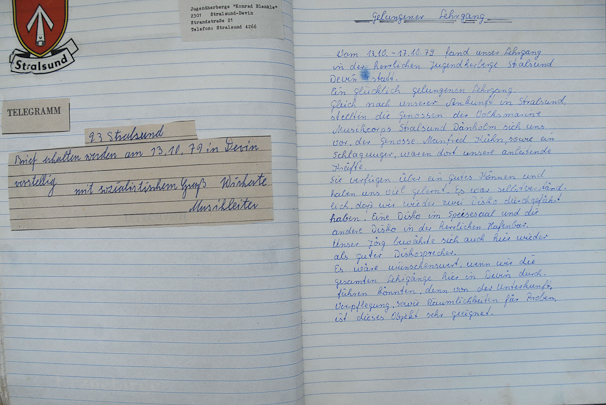 Stralsund
Jugendherberge "Konrad Blenkle"
2301 Stralsund-Devin
Strandstraße 21
Telefon: Stralsund 4256
TELEGRAMM
93 Stralsund
Brief erhalten werden am 13.10.79 in Devin
vorstellig mit sozialistischem Gruß Wicharte
Musikleiter
Gelungener Lehrgang
Vom 13.10. - 17.10.79 fand unser Lehrgang
in der herrlichen Jugendherberge Stralsund
Devin statt.
Ein glücklich gelungener Lehrgang.
Gleich nach unserer Ankunft in Stralsund
stellten die Genossen der Volksmarine
Musikcorps Stralsund Dänholm sich uns
vor, der Genosse Manfred Kühn, sowie ein
Schlagzeuger, waren dort unsere anleitende
Kräfte.
Sie verfügen über ein gutes Können und
haben uns viel gelernt. Es war selbstverständ-
lich, daß wir wieder zwei Disko durchgeführt
haben. Eine Disko im Speisesaal und die
andere Disko in der herrlichen Hafenbar.
Unser Jörg bewährte sich auch hier wieder
als guter Diskosprecher.
Es wäre wünschenswert, wenn wir die
gesamten Lehrgänge hier in Devin durch-
führen könnten, denn von der Unterkunft,
Verpflegung, sowie Räumlichkeiten für Proben,
ist dieses Objekt sehr geeignet.